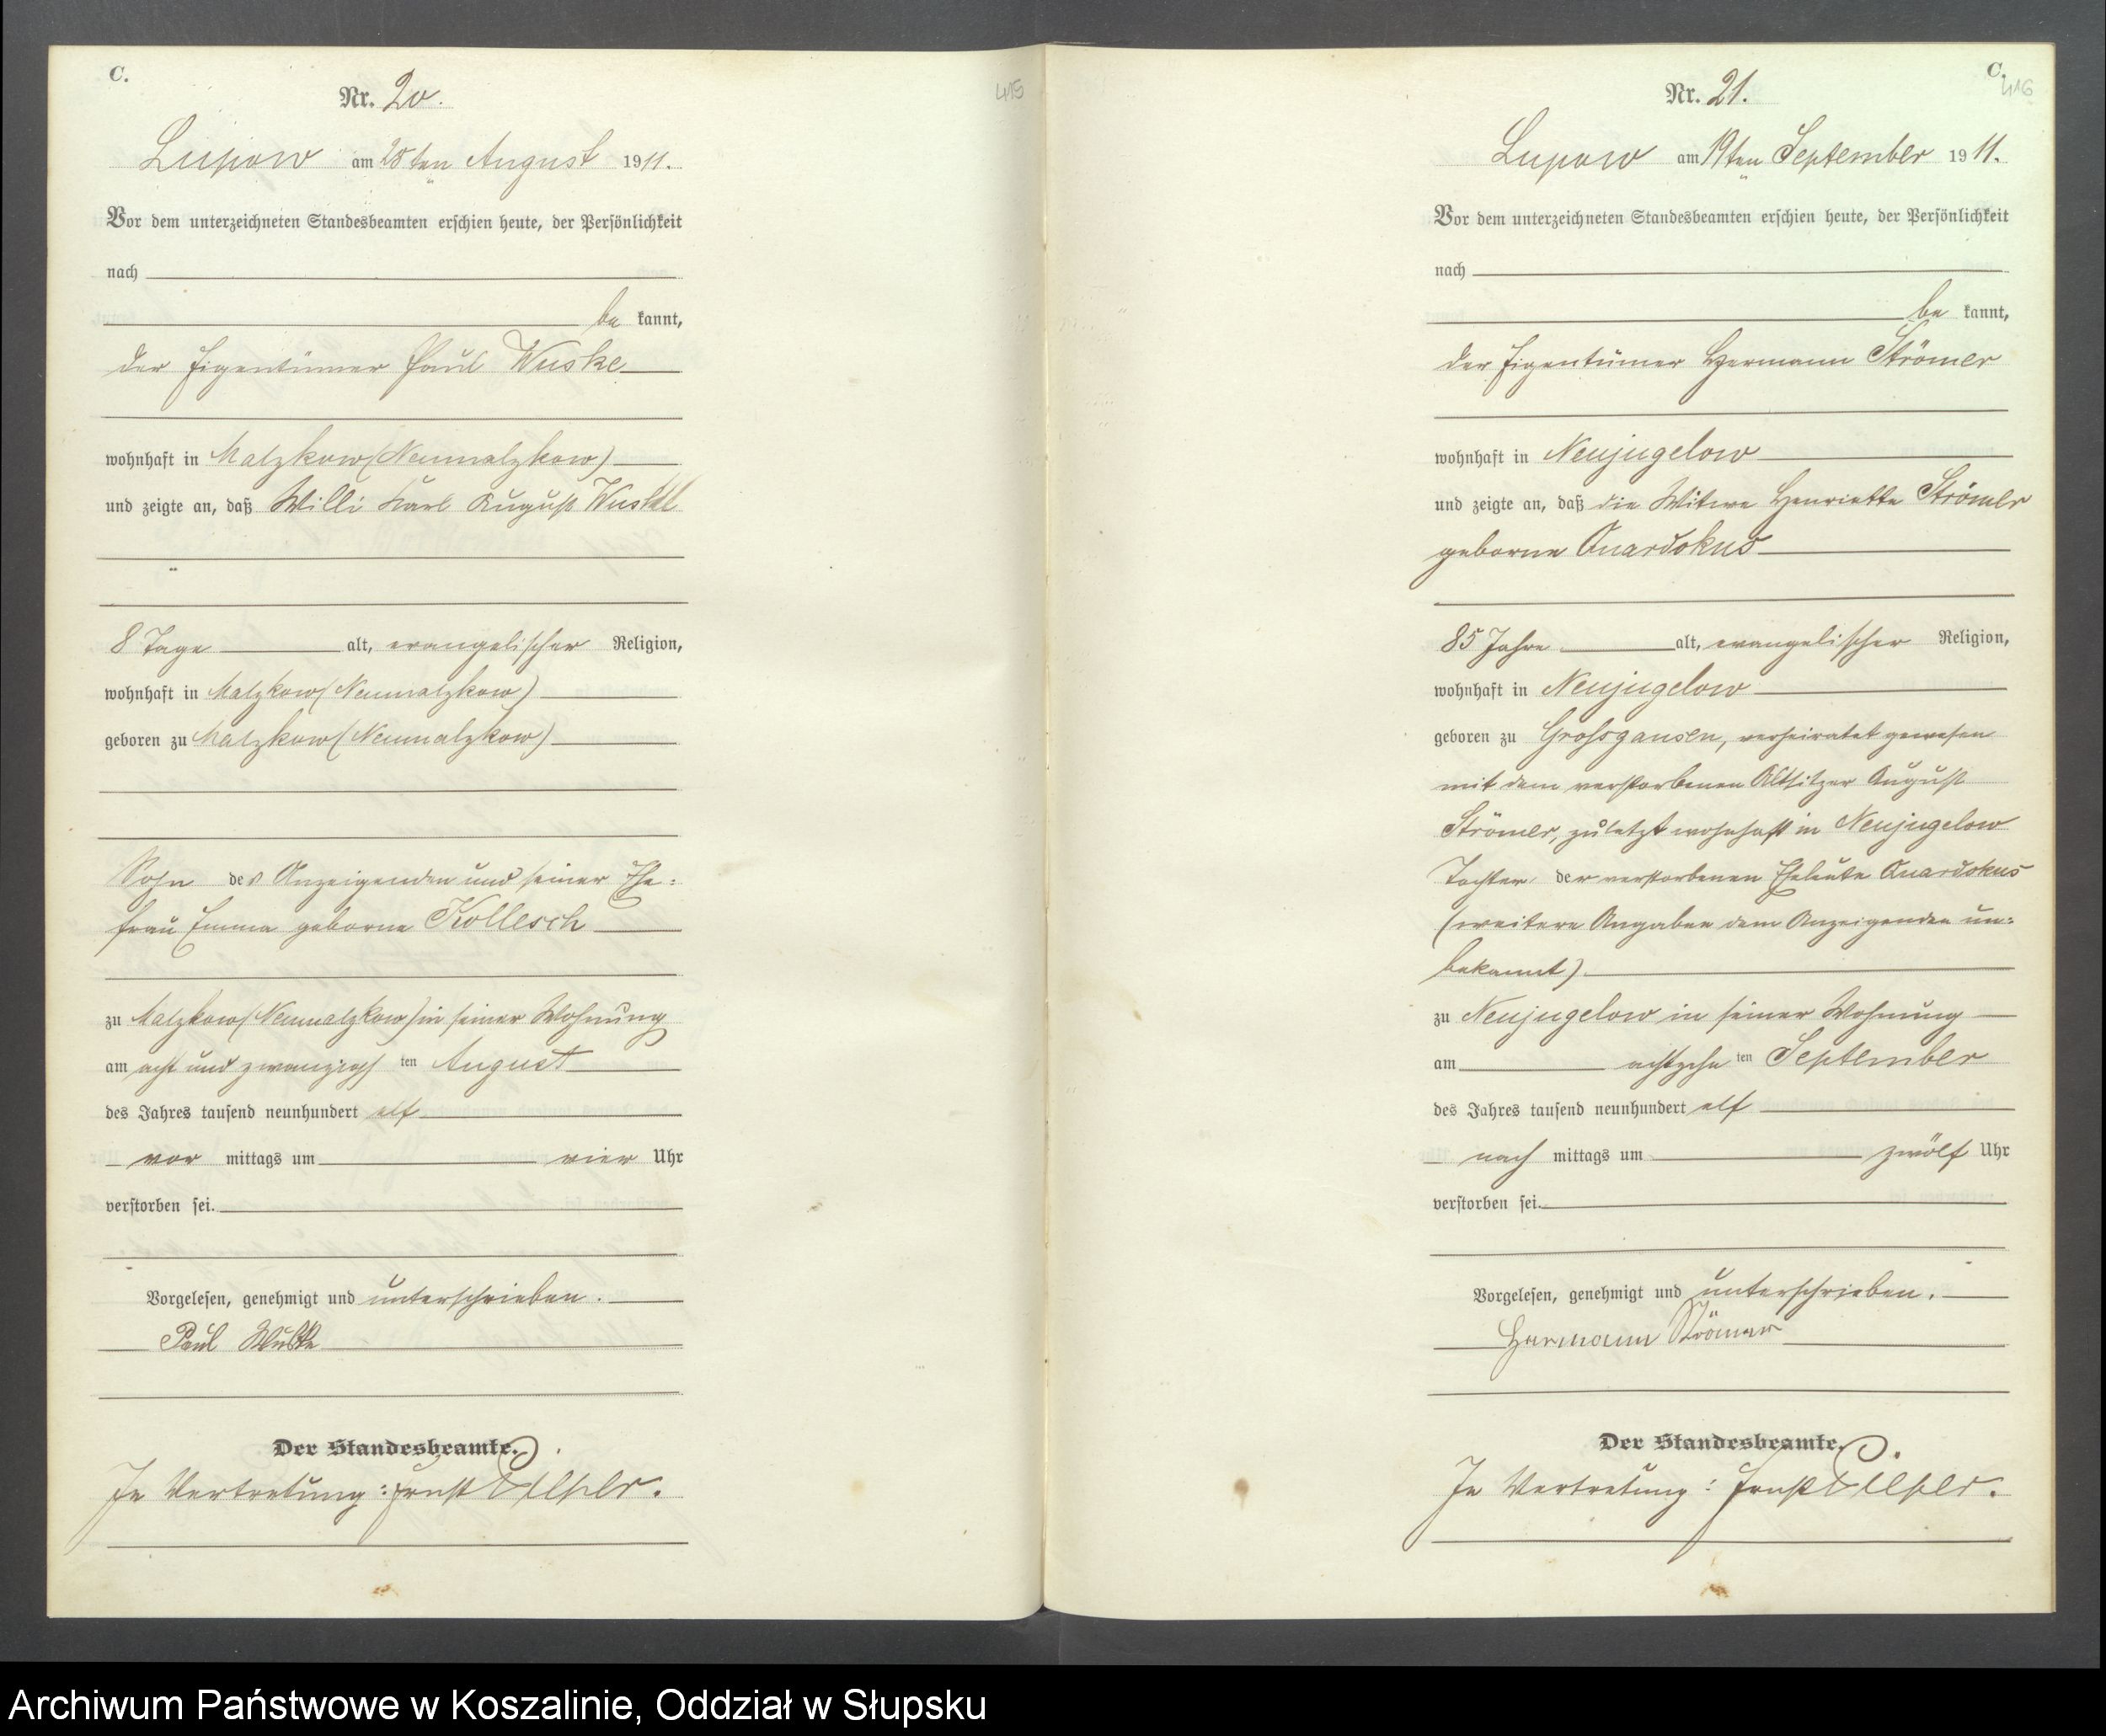 C.
Nr. 20.
415
Lupow am 28ten August 1911.
Vor dem unterzeichneten Standesbeamten erschien heute, der Persönlichkeit
nach
be kannt,
der Eigentümer Paul Wuske
wohnhaft in Malzkow (Neumalzkow)
und zeigte an, daß Willi Karl August Wuske
8 Tage alt, evangelischer Religion,
wohnhaft in Malzkow (Neumalzkow)
geboren zu Malzkow (Neumalzkow)
Sohn des Anzeigenden und seiner Ehe=
frau Emma geborne Kollesch
zu Malzkow (Neumalzkow) in seiner Wohnung
am acht und zwanzigsten August
des Jahres tausend neunhundert elf
vor mittags um vier Uhr
verstorben sei.
Vorgelesen, genehmigt und unterschrieben.
Paul Wuske
Der Standesbeamte.
In Vertretung: Ernst
C.
416
Nr. 21.
Lupow am 19ten September 1911.
Vor dem unterzeichneten Standesbeamten erschien heute, der Persönlichkeit
nach
be kannt,
der Eigentümer Hermann Strömer
wohnhaft in Neujugelow
und zeigte an, daß die Witwe Henriette Strömer
geborne Quardokus
85 Jahre alt, evangelischer Religion,
wohnhaft in Neujugelow
geboren zu Großgansen, verheiratet gewesen
mit dem verstorbenen Altsitzer August
Strömer, zuletzt wohnhaft in Neujugelow
Tochter der verstorbenen Eheleute Quardokus
(weitere Angaben dem Anzeigenden un=
bekannt)
zu Neujugelow in seiner Wohnung
am achtzehn ten September
des Jahres tausend neunhundert elf
nach mittags um zwölf Uhr
verstorben sei.
Vorgelesen, genehmigt und unterschrieben.
Hermann Strömer
Der Standesbeamte.
In Vertretung: Ernst
Archiwum Państwowe w Koszalinie, Oddział w Słupsku